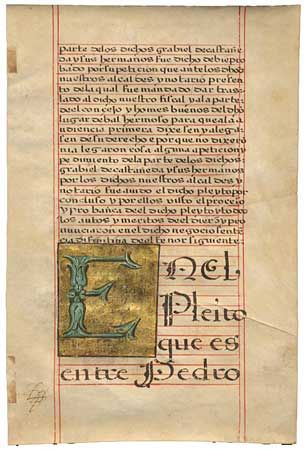 parte delos dichos grabiel decastañe
da ysus hermanos fue dicho debienpro
bado por su peticion que ante los dhos
nuestros alcaldes y notario presento
de la qual fue mandado dar tras
lado al dicho nuestro fiscal y ala parte
del concejo y homes buenos del dho
lugar de bal hermoso para que ala
audiencia primera dixesen y alega
sen de su derecho e por que no dixero
ni alegaron cosa alguna apeticion y
pedimiento dela parte de los dichos
grabiel decastañeda y sus hermanos
por los dichos nuestros alcaldes y
notario fue auido el dicho pleyto por
concluso y por ellos visto el proceso
y probança del dicho pleyto y todos
los autos y meritos del dieron y pro
nunciaron en el dicho negocio senten
cia difinitiua del tenor siguiente
ENEL
Pleito
que es
entre Pedro